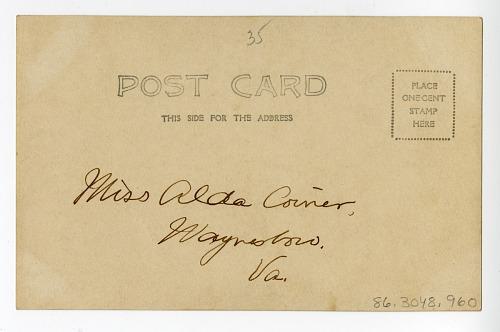 35
POST CARD
THIS SIDE FOR THE ADDRESS
PLACE
ONE CENT
STAMP
HERE
Miss Alda Coiner,
Waynesboro.
Va.
86.3048.960